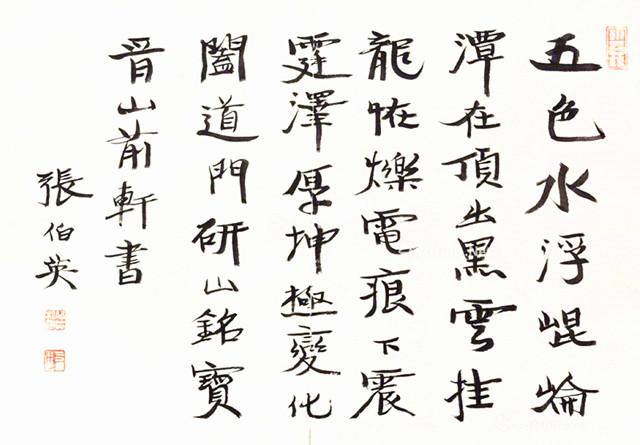 五色水浮崐崘
潭在頂出黑雲挂
龍恠爍電痕下震
霆澤厚坤極變化
闔道門研山銘寶
晉山前軒書
張伯英